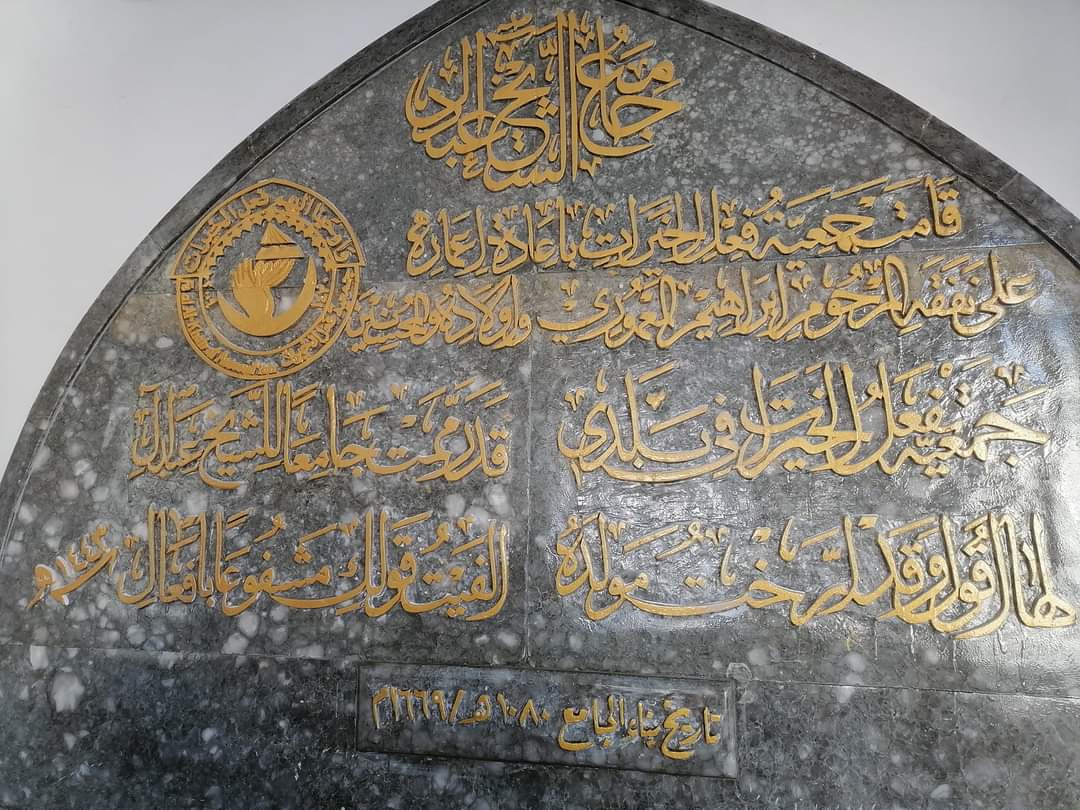 جامع الشيخ عبدال
قامت جمعية فعل الخيرات باعادة اعماره
على نفقة المرحوم ابراهيم واولاده والمحسنين
جمعية تفعل الخيرات في بلدي قد رممت جامعا للشيخ عبدال
ارخت مولده الفيت قولك مشفوعا بافعال ١٤٤٢هـ
تاريخ بناء الجامع ١٠٨٠هـ/١٦٦٩م